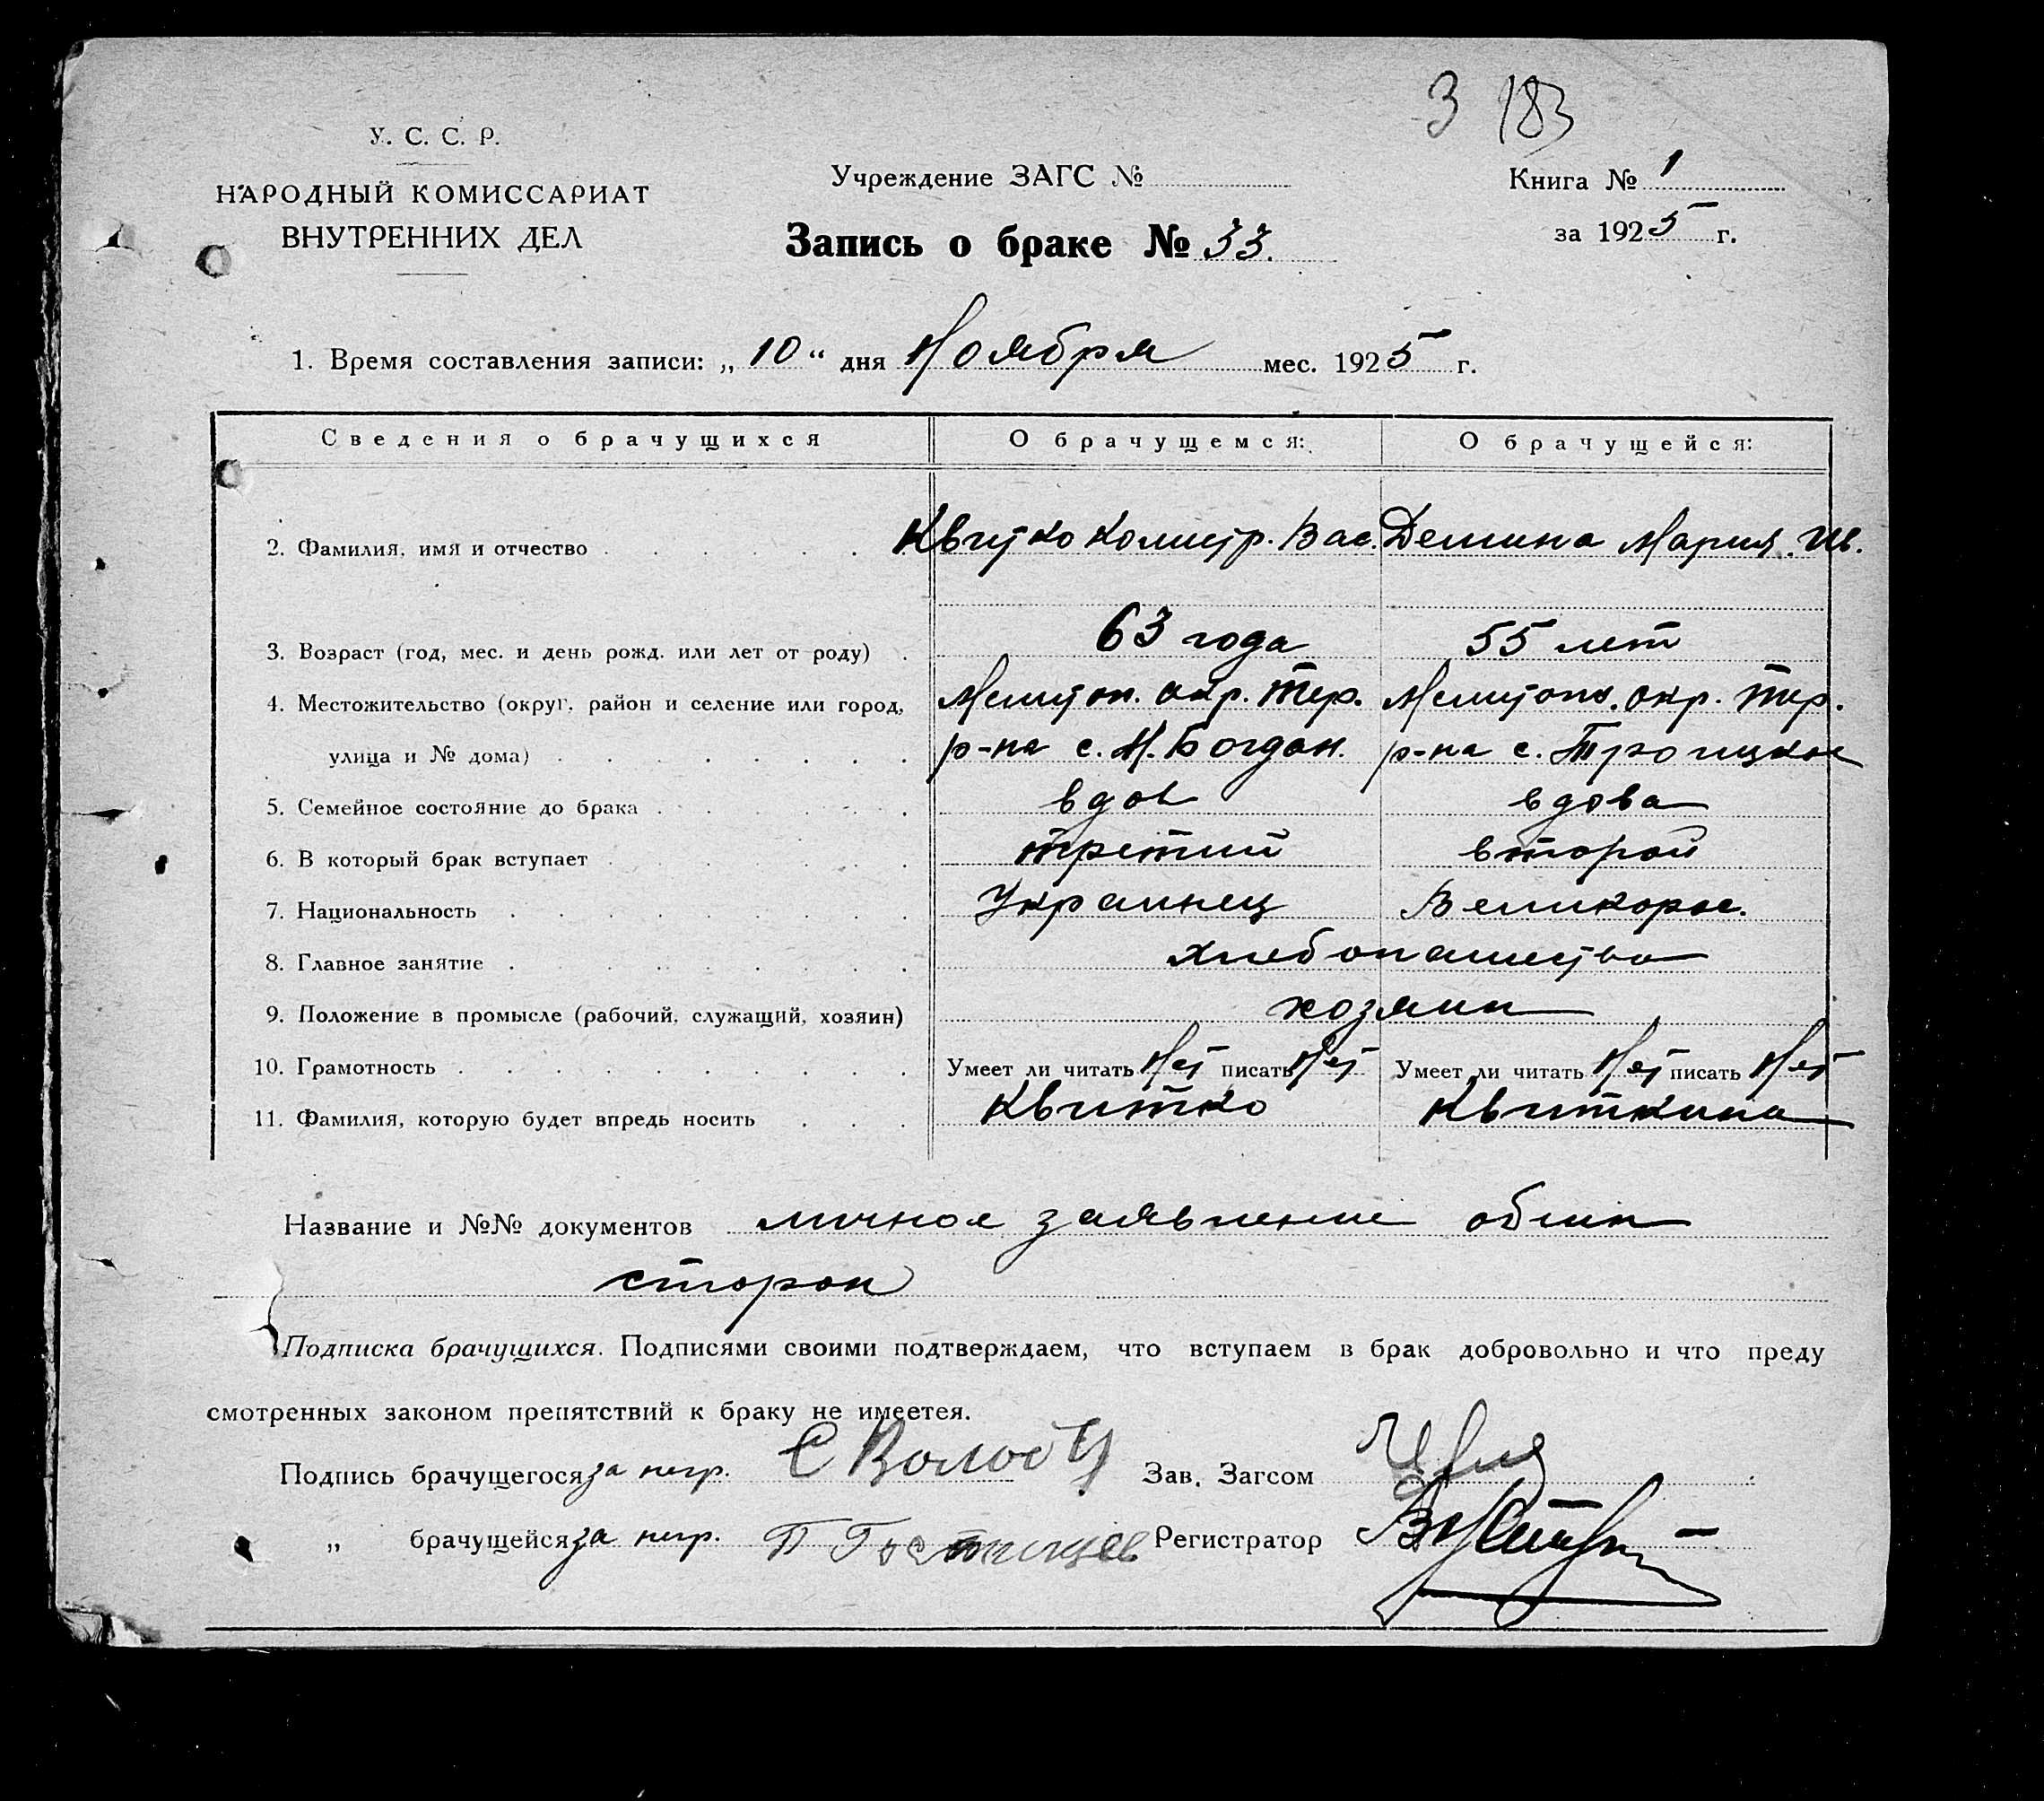 3 183
У. С. С. Р.
НАРОДНЫЙ КОМИССАРИАТ
ВНУТРЕННИХ ДЕЛ
Учреждение ЗАГС №
Запись о браке № 33.
Книга № 1
за 1925 г.
1. Время составления записи: „ 10 “ дня Ноября мес. 1925 г.
Сведения о брачущихся О брачущемся: О брачущейся:
2. Фамилия, имя и отчество Квитко Калистр. Вас. Демина Мария Ив.
3. Возраст (год, мес. и день рожд. или лет от роду) 63 года 55 лет
4. Местожительство (округ, район и селение или город, Мелитоп. окр. Тер. Мелитоп. окр. Тер.
улица и № дома) р-на с. Н. Богдан. р-на с. Троицкое
5. Семейное состояние до брака вдов вдова
6. В который брак вступает третий второй
7. Национальность Украинец Великорос.
8. Главное занятие хлебопашество
9. Положение в промысле (рабочий, служащий, хозяин) хозяин
10. Грамотность Умеет ли читать Нет писать Нет Умеет ли читать Нет писать Нет
11. Фамилия, которую будет впредь носить Квитко Квиткина
Название и №№ документов личное заявление обоих
сторон
Подписка брачущихся. Подписями своими подтверждаем, что вступаем в брак добровольно и что преду
смотренных законом препятствий к браку не имеетея.
Подпись брачущегося за негр. Зав. Загсом
„ брачущейся за негр. Регистратор